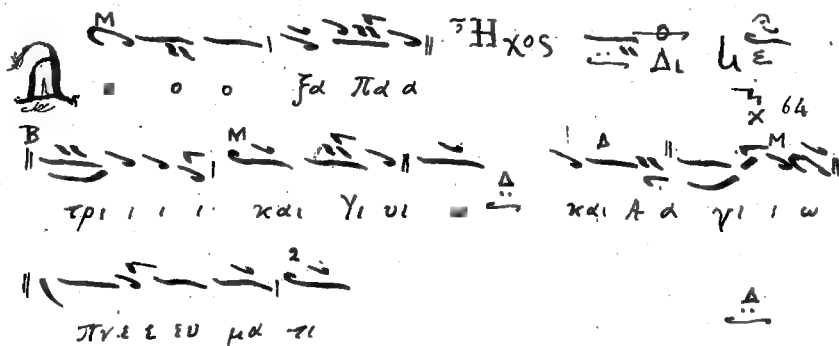 Ἦχος Δι
ο ο ξα Πα α
χ 64
τρι ι ι ι και Υι υι και Α α γι ι ω
Πνε ε ευ μα τι